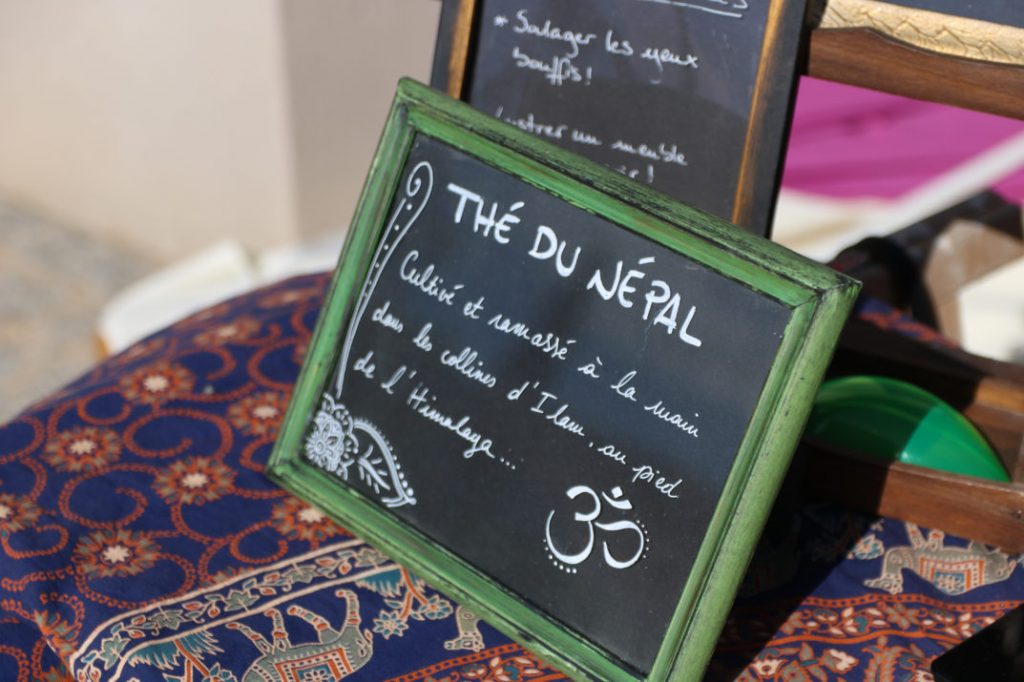 * Soulager les yeux
bouffis!
Lustrer un meuble
THÉ DU NÉPAL
Cultivé et ramassé à la main
dans les collines d'Ilam, au pied
de l'Himalaya...
ॐ